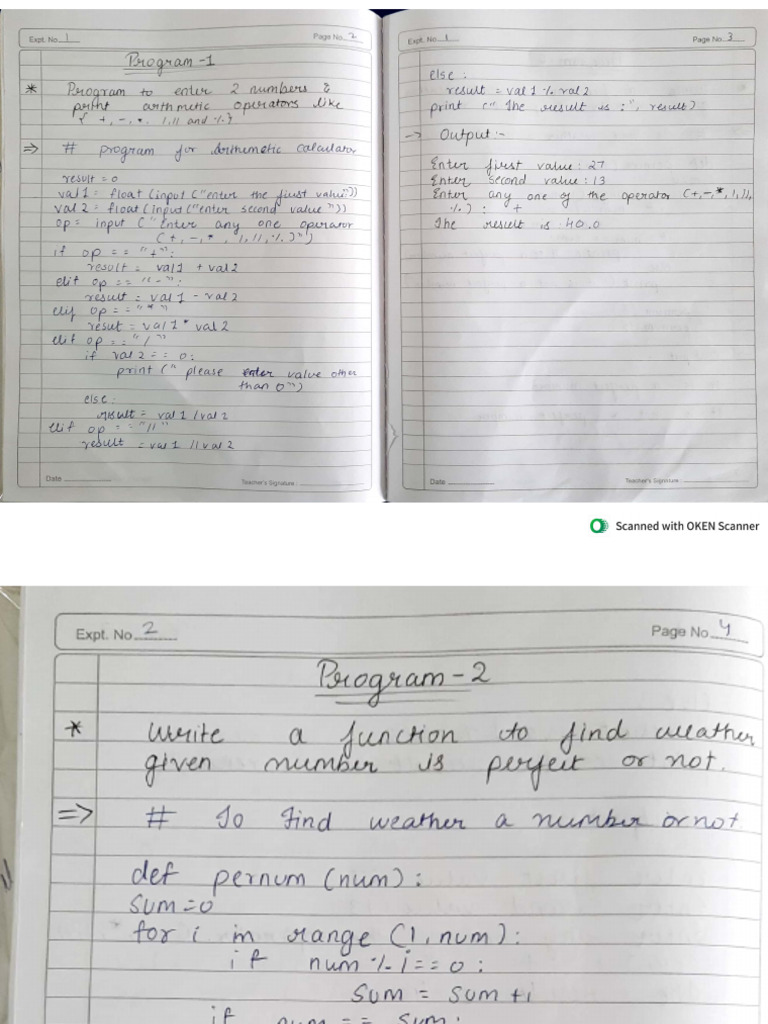 Expt. No. 1
Page No. 2
Program-1
* Program to enter 2 numbers &
print arthmetic operators like
{ +, -, *, /, // and % }
=> # program for Arithmetic calculator
result = 0
val 1 = float (input ("enter the first value"))
val 2 = float (input ("enter second value"))
op = input ("Enter any one operator
(+, -, *, /, //, %)")
if op == "+":
result = val 1 + val 2
elif op == "-":
result = val 1 - val 2
elif op == "*"
resut = val 1 * val 2
elif op == "/"
if val 2 == 0:
print (" please enter value other
than 0")
else:
result = val 1 / val 2
elif op == "//"
result = val 1 // val 2
Date
Teacher's Signature :
Expt. No. 1
Page No. 3
else:
result = val 1 % val 2
print (" The result is :", result)
-> Output:-
Enter first value : 27
Enter second value : 13
Enter any one of the operator (+,-,*,/,//,
%) : +
The result is 40.0
Date
Teacher's Signature :
Scanned with OKEN Scanner
Expt. No. 2
Page No. 4
Program-2
* Write a function to find weather
given number is perfect or not.
=> # To Find weather a number or not
def pernum (num):
sum=0
for i in range (1, num):
if num % i == 0:
sum = sum + i
if num == sum: